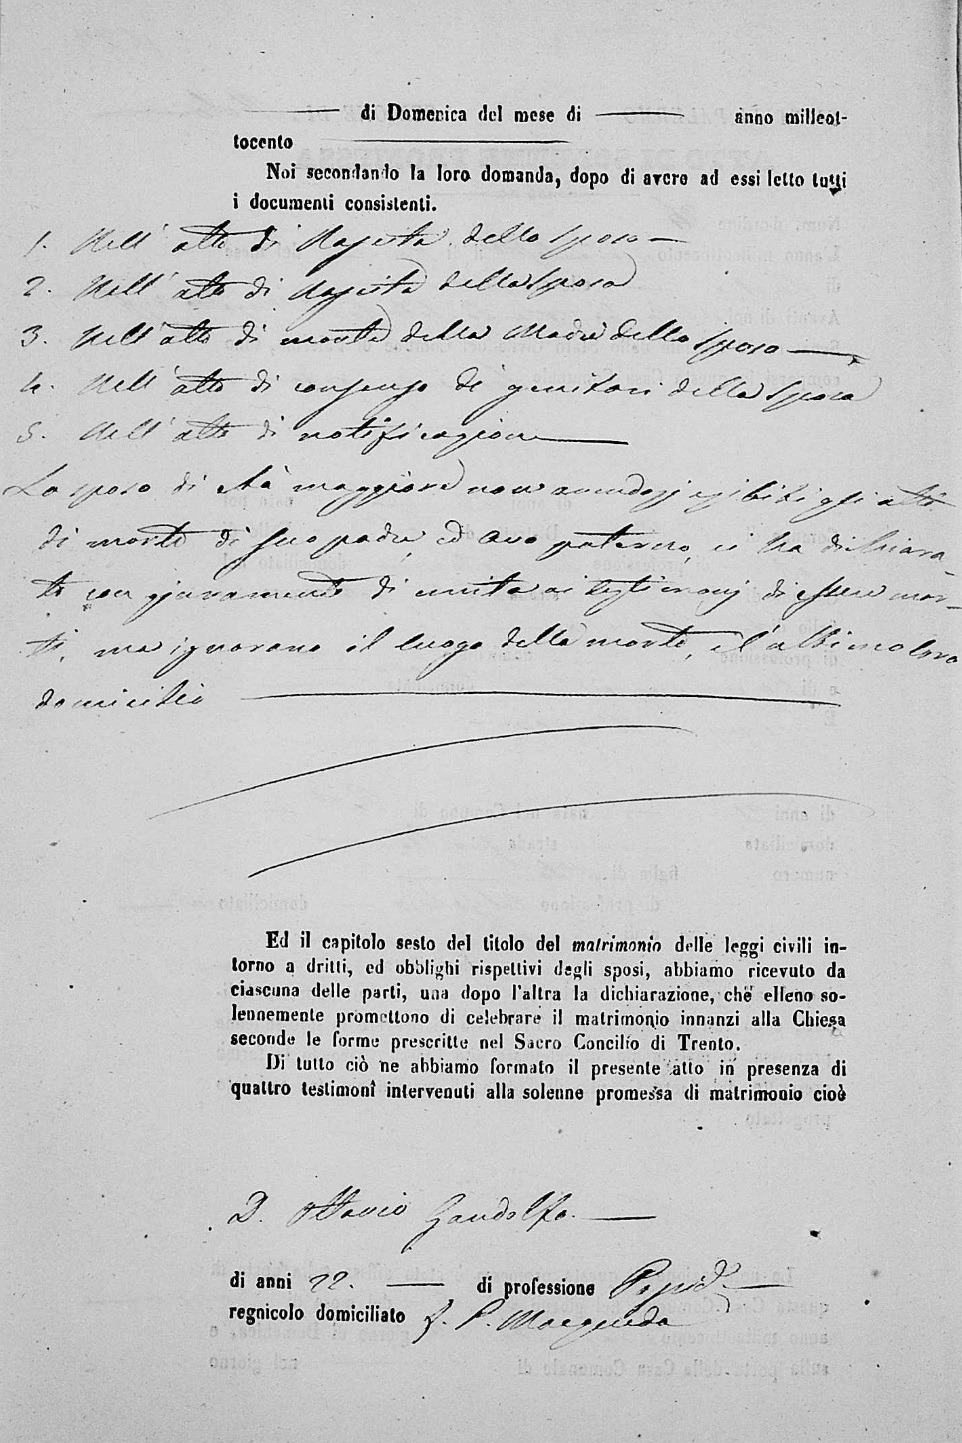 di Domenica del mese di anno milleot-
tocento
Noi secondando la loro domanda, dopo di avere ad essi letto tutti
i documenti consistenti.
1. Nell' atto di Nascita dello sposo
2. Nell' atto di Nascita della Sposa
3. Nell' atto di morte della Madre dello sposo
4. Nell' atto di consenso de' genitori della Sposa
5. Nell' atto di notificazione
Lo sposo di età maggiore non avendosi esibiti gli atti
di morte di suo padre, ed avo paterno, ci ha dichiara-
to con giuramento di unita ai testimonj di essere mor-
ti, ma ignorano il luogo della morte, e l'ultimo loro
domicilio
Ed il capitolo sesto del titolo del matrimonio delle leggi civili in-
torno a dritti, ed obblighi rispettivi degli sposi, abbiamo ricevuto da
ciascuna delle parti, una dopo l'altra la dichiarazione, che elleno so-
lennemente promettono di celebrare il matrimonio innanzi alla Chiesa
seconde le forme prescritte nel Sacro Concilio di Trento.
Di tutto ciò ne abbiamo formato il presente atto in presenza di
quattro testimonî intervenuti alla solenne promessa di matrimonio cioè
D. Ottavio Gandolfo
di anni 22. di professione
regnicolo domiciliato